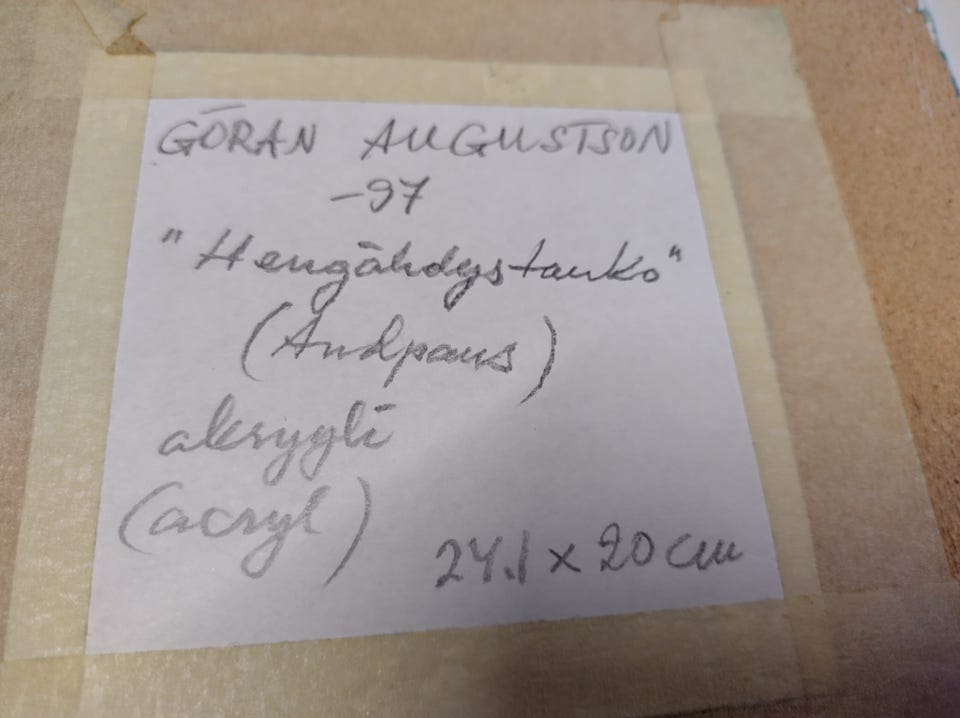 GÖRAN AUGUSTSON
-97
"Hengähdystauko"
(Andpaus)
akryyli
(acryl)
24.1 x 20 cm